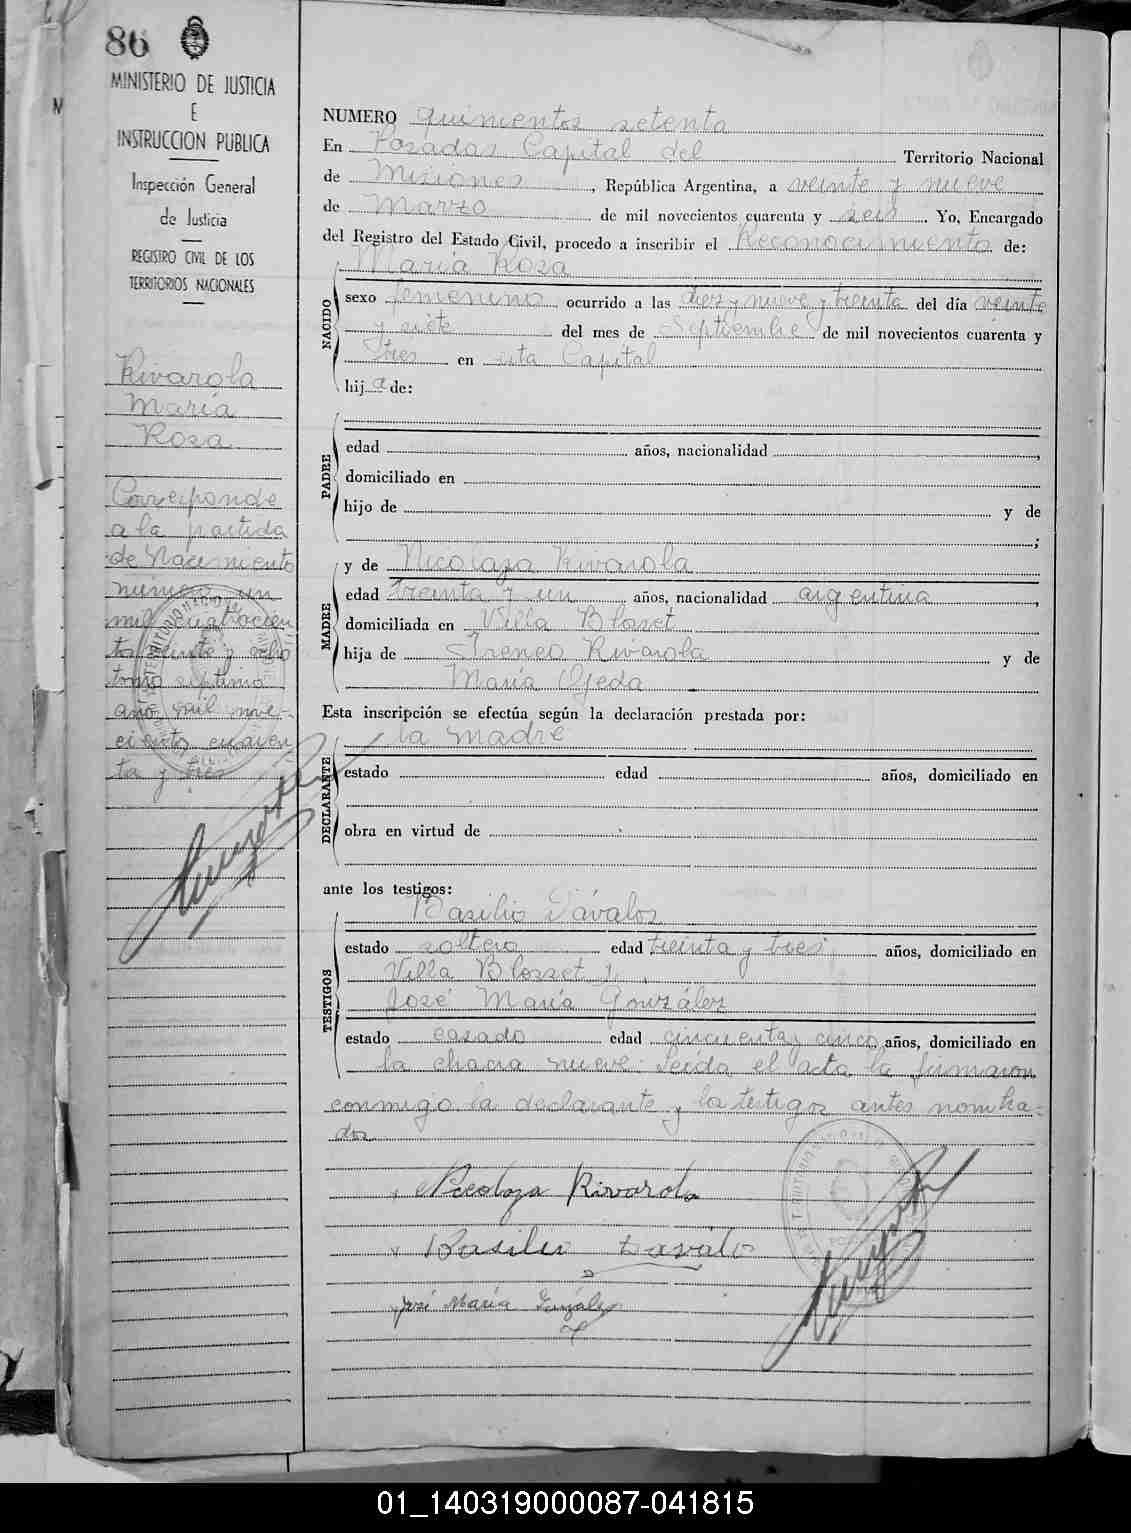 86
MINISTERIO DE JUSTICIA
E
INSTRUCCION PUBLICA
Inspección General
de Justicia
REGISTRO CIVIL DE LOS
TERRITORIOS NACIONALES
Rivarola
María
Rosa
Corresponde
a la partida
de Nacimiento
número un
mil cuatrocien
tos veinte y ocho
tomo septimo
año mil nove-
cientos cuaren
ta y tres
NUMERO quinientos setenta
En Posadas Capital del Territorio Nacional
de Misiones, República Argentina, a veinte y nueve
de Marzo de mil novecientos cuarenta y seis. Yo, Encargado
del Registro del Estado Civil, procedo a inscribir el Reconocimiento de:
María Rosa
NACIDO
sexo femenino ocurrido a las diez y nueve y treinta del día veinte
y siete del mes de Septiembre de mil novecientos cuarenta y
tres en esta Capital
hija de:
PADRE
edad años, nacionalidad ,
domiciliado en
hijo de y de
;
y de Nicolaza Rivarola
MADRE
edad treinta y un años, nacionalidad argentina,
domiciliada en Villa Blosset
hija de Ireneo Rivarola y de
María Ojeda
Esta inscripción se efectúa según la declaración prestada por:
la madre
DECLARANTE
estado edad años, domiciliado en
obra en virtud de
ante los testigos:
Basilio Dávalos
TESTIGOS
estado soltero edad treinta y tres años, domiciliado en
Villa Blosset y
José María González
estado casado edad cincuenta y cinco años, domiciliado en
la chacra nueve. Leída el acta la firmaron
conmigo la declarante y los testigos antes nombra-
dos
Nicolaza Rivarola
Basilio Davalo
José María Gonzáles
01_140319000087-041815